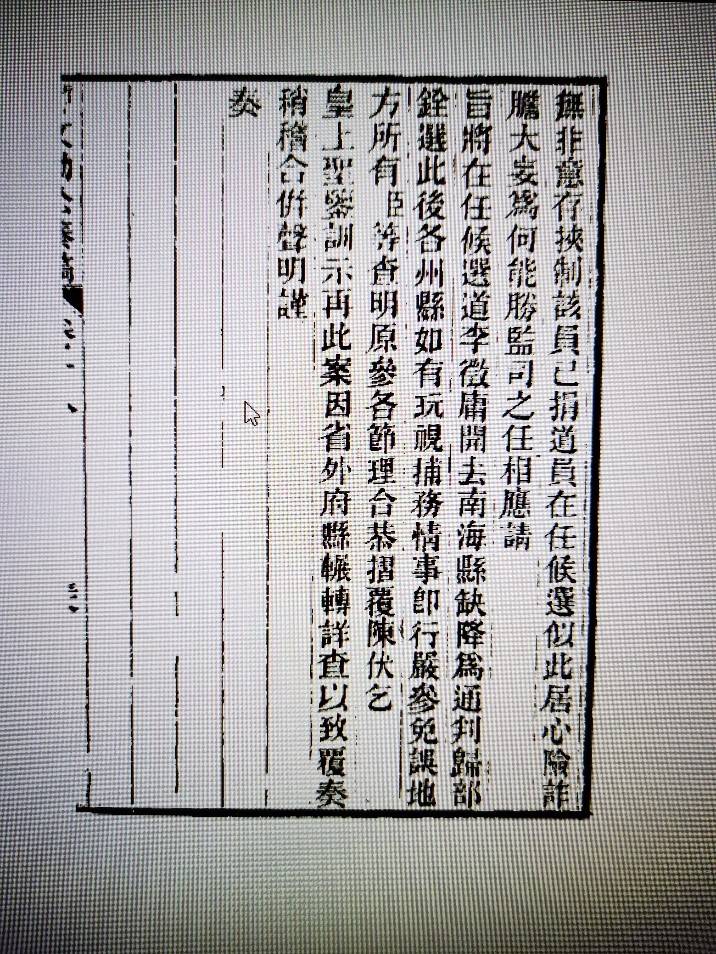 無非意存挾制該員已捐道員在任候選似此居心險詐
膽大妄為何能勝監司之任相應請
旨將在任候選道李徵庸開去南海縣缺降為通判歸部
銓選此後各州縣如有玩視捕務情事卽行嚴參免誤地
方所有臣等查明原參各節理合恭摺覆陳伏乞
皇上聖鑒訓示再此案因省外府縣輾轉詳查以致覆奏
稍稽合併聲明謹
奏